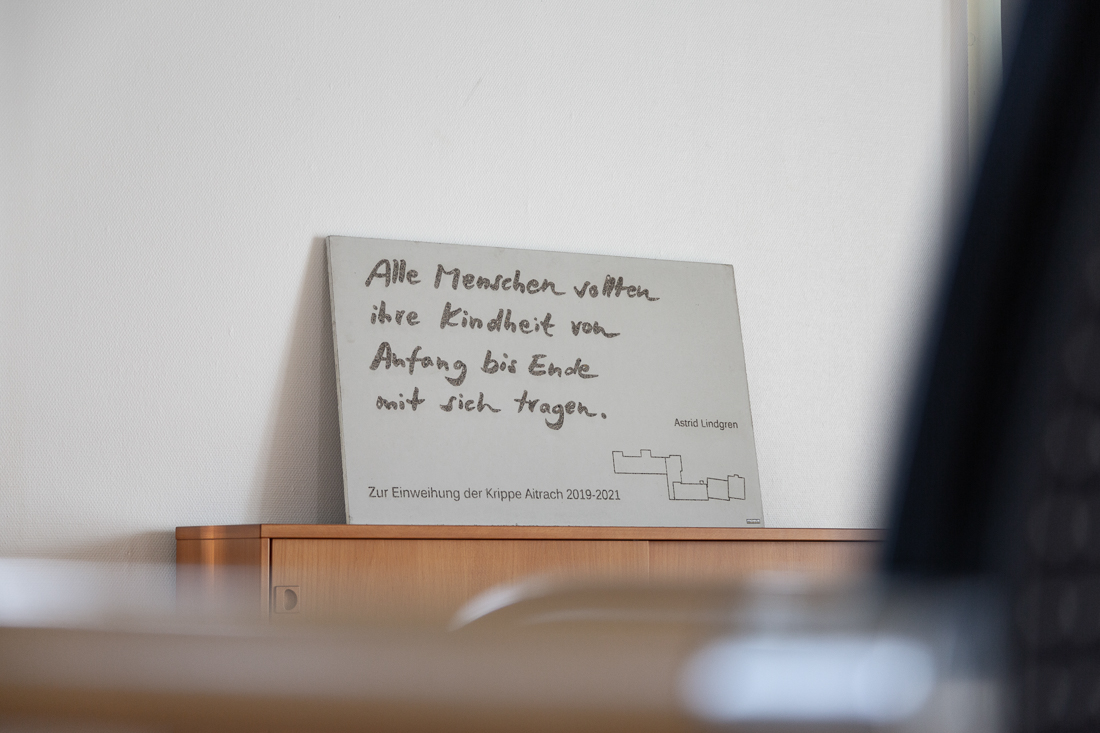 Alle Menschen sollten
ihre Kindheit von
Anfang bis Ende
mit sich tragen.
Astrid Lindgren
Zur Einweihung der Krippe Aitrach 2019-2021